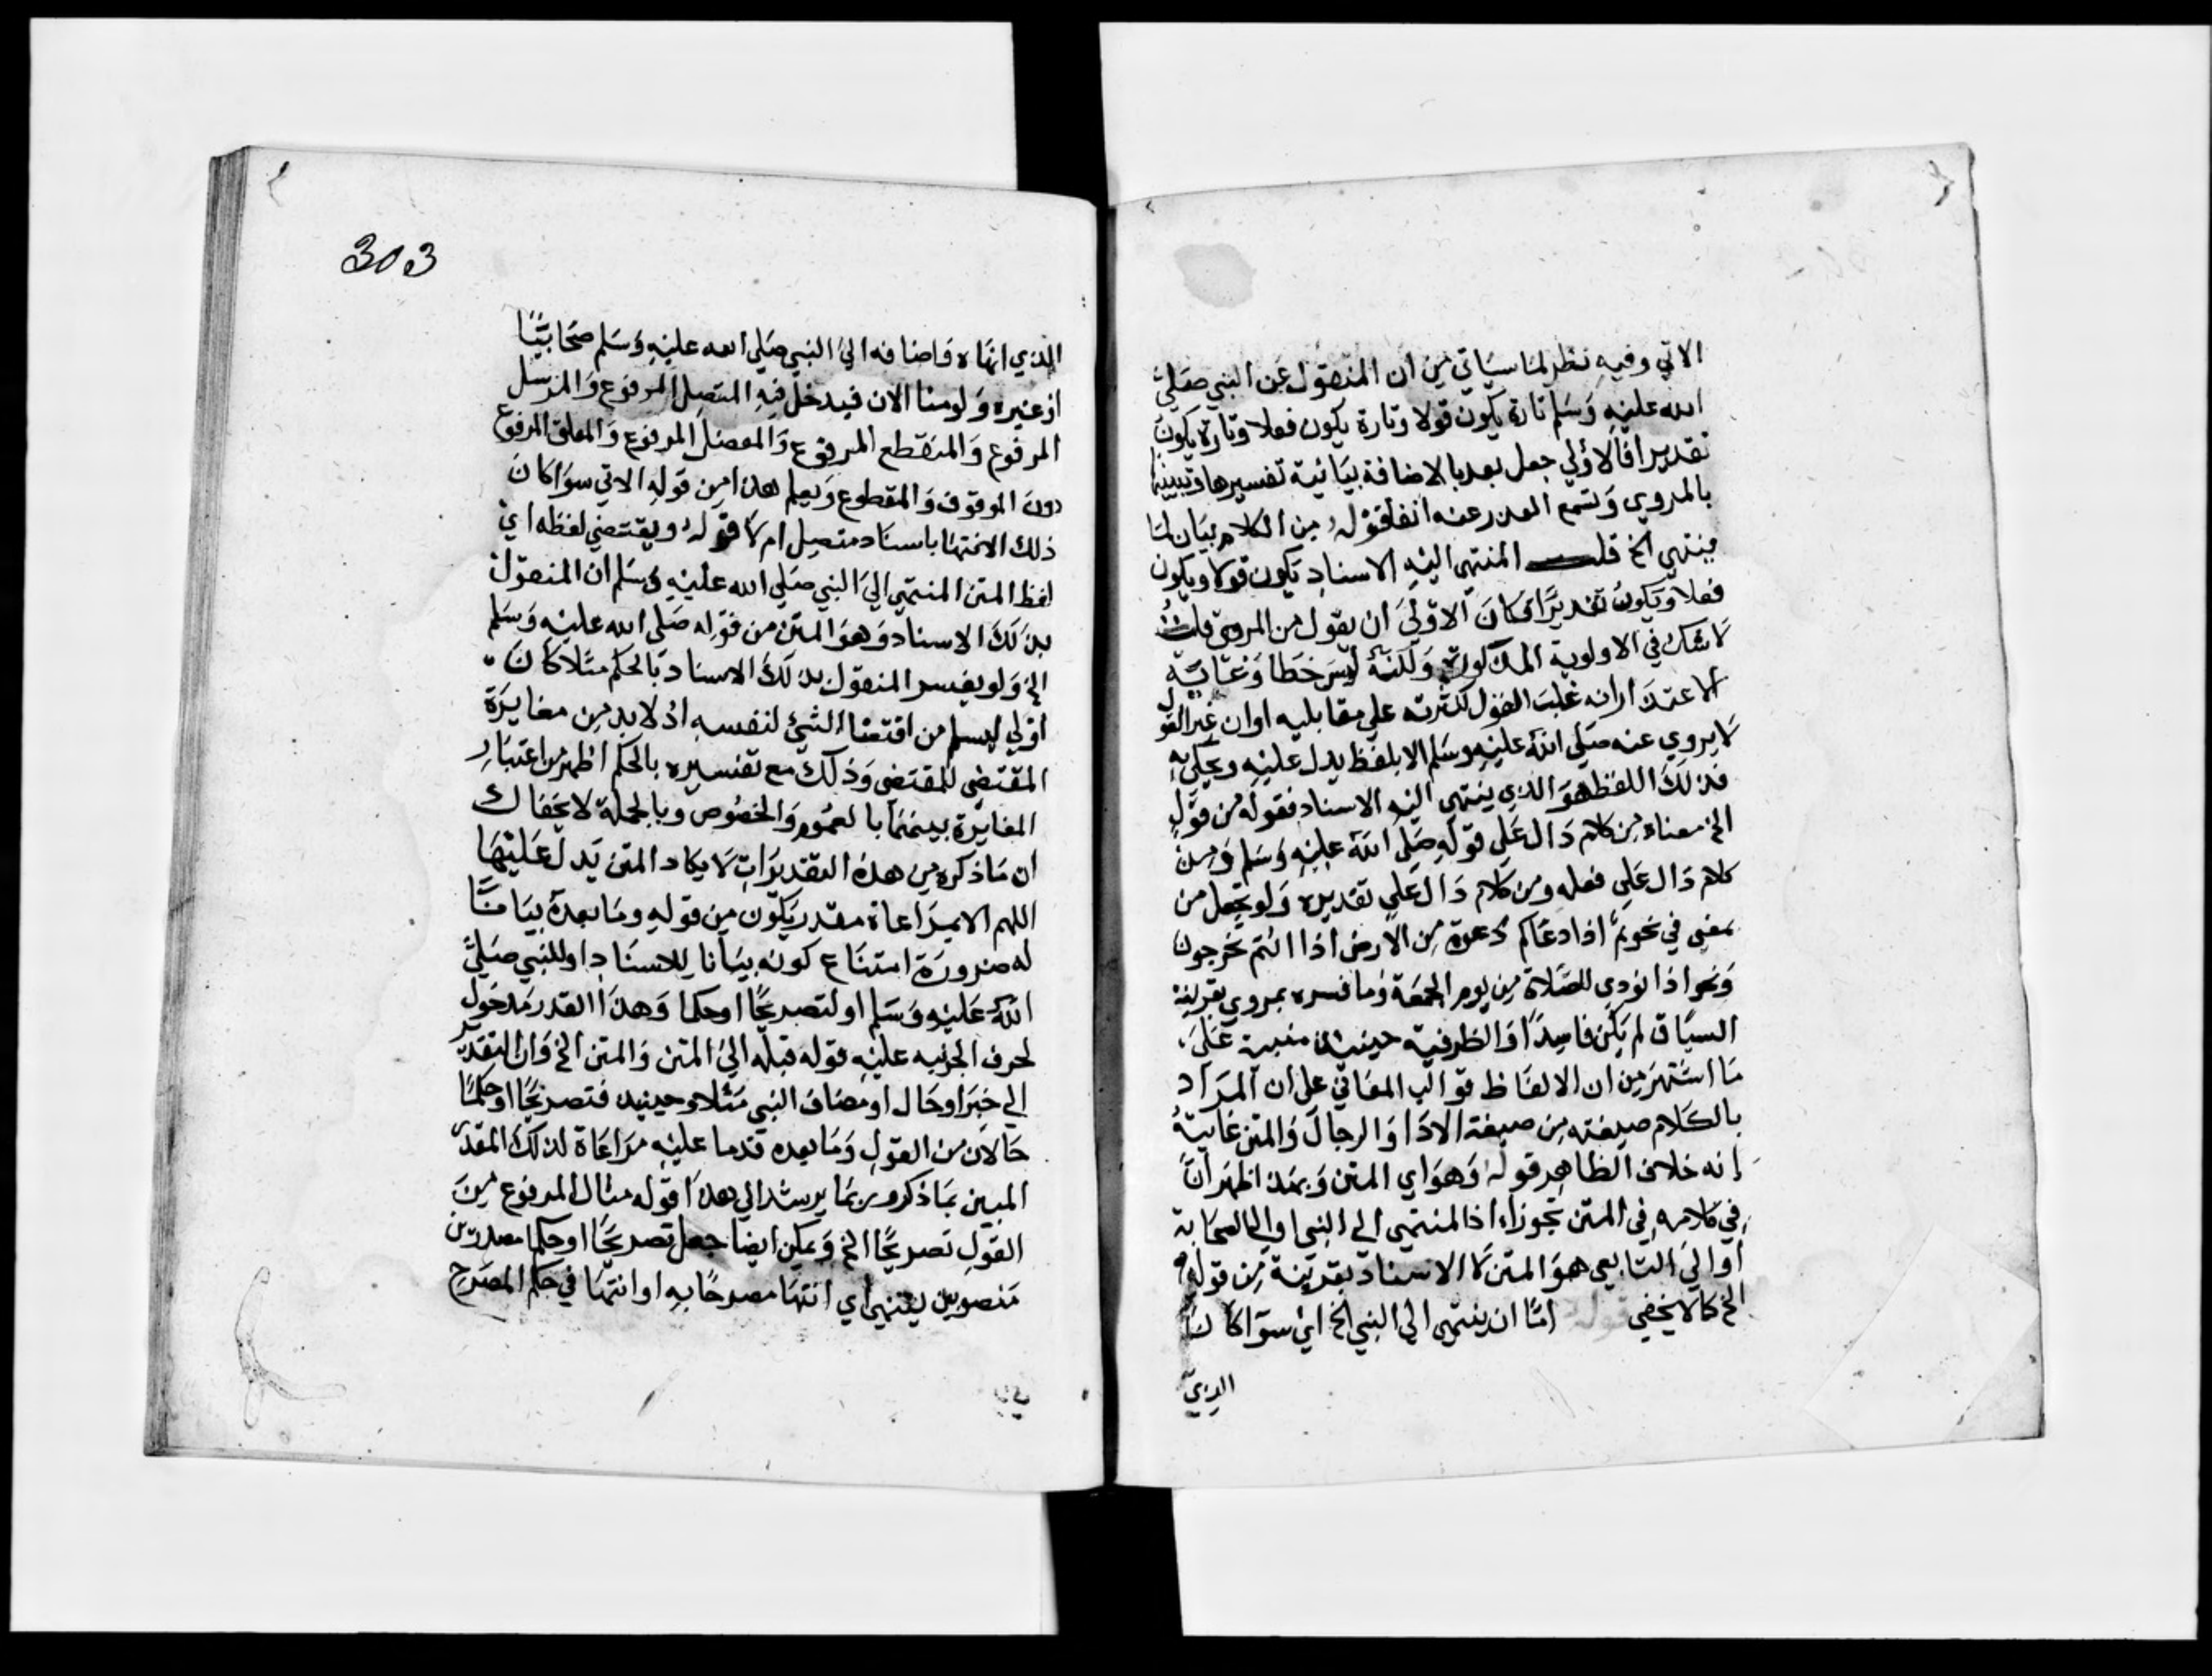 الاتي وفيه نظر لما سياتي من ان المنقول عن النبي صلي
الله عليه وسلم تارة يكون قولا وتارة يكون فعلا وتارة يكون
تقديرا فالاولي جعل بعد بالاضافة بيانية تفسيرها وتبيينها
بالمروي وتسمع العذر عنه انفا قوله من الكلام بيان لما
ينتهي الخ قلت المنتهي اليه الاسناد يكون قولا ويكون
فعلا ويكون تقديرا فكان الاولي ان يقول من المروي قلت
لا شك في الاولوية المذكورة ولكنه ليس خطا وغايته
الاعتذار انه غلب القول لكثرته علي مقابليه او ان غير القول
لا يروي عنه صلي الله عليه وسلم الا بلفظ يدل عليه ويحكي به
فذلك اللفظ هو الذي ينتهي اليه الاسناد فقوله من قول
الخ معناه من كلام دال علي قوله صلي الله عليه وسلم ومن
كلام دال علي فعله ومن كلام دال علي تقديره ولو تجعل من
بمعني في نحو ثم اذا دعاكم دعوة من الارض اذا انتم تخرجون
ونحو اذا نودي للصلاة من يوم الجمعة وما فسره بمروي بقرينة
السياق لم يكن فاسدا والظرفية حينيذ مبنية علي
ما اشتهر من ان الالفاظ قوالب المعاني علي ان المراد
بالكلام صيغته من صيغة الادا والرجال والمتن غايته
انه خلاف الظاهر قوله وهو اي المتن وبهذا ظهر ان
في كلامه في المتن تجوزا اذ المنتهي الي النبي او الي الصحابة
او الي التابعي هو المتن لا الاسناد بقرينة من قوله
الخ كما لا يخفي قوله اما ان ينتهي الي النبي الخ اي سوا كان
الذي
303
الذي انهاه واضافه الي النبي صلي الله عليه وسلم صحابيا
او غيره ولو منا الان فيدخل فيه المتصل المرفوع والمرسل
المرفوع والمنقطع المرفوع والمعضل المرفوع والمعلق المرفوع
دون الموقوف والمقطوع ويعلم هذا من قوله الاتي سوا كان
ذلك الانتها باسناد متصل ام لا قوله ويقتضي لفظه اي
لفظ المتن المنتهي الي النبي صلي الله عليه وسلم ان المنقول
بذلك الاسناد وهو المتن من قوله صلي الله عليه وسلم
الخ ولو يفسر المنقول بذلك الاسناد بالحكم مثلا كان
اولي ليسلم من اقتضا الشي لنفسه اذ لا بد من مغايرة
المقتضي للمقتضي وذلك مع تفسيره بالحكم اظهر من اعتبار
المغايرة بينهما بالعموم والخصوص وبالجملة لا يخفاك
ان ما ذكره من هذه التقديرات لا يكاد المتن يدل عليها
اللهم الا بمراعاة مقدر يكون من قوله وما بعده بيانا
له ضرورة امتناع كونه بيانا للاسناد او للنبي صلي
الله عليه وسلم او لتصريحا او حكما وهذا القدر مدخول
لحرف الجر نبه عليه قوله قبله الي المتن والمتن الخ وان التقدير
الي خبر او حال او مضاف النبي مثلا وحينيذ فتصريحا او حكما
حالان من القول وما بعده قدما عليه مراعاة لذلك المقدر
المبين بما ذكر وربما يرشد الي هذا قوله مثال المرفوع من
القول تصريحا الخ ويمكن ايضا جعل تصريحا او حكما مصدرين
منصوبين لينتهي اي انتها مصرحا به او انتها في حكم المصرح